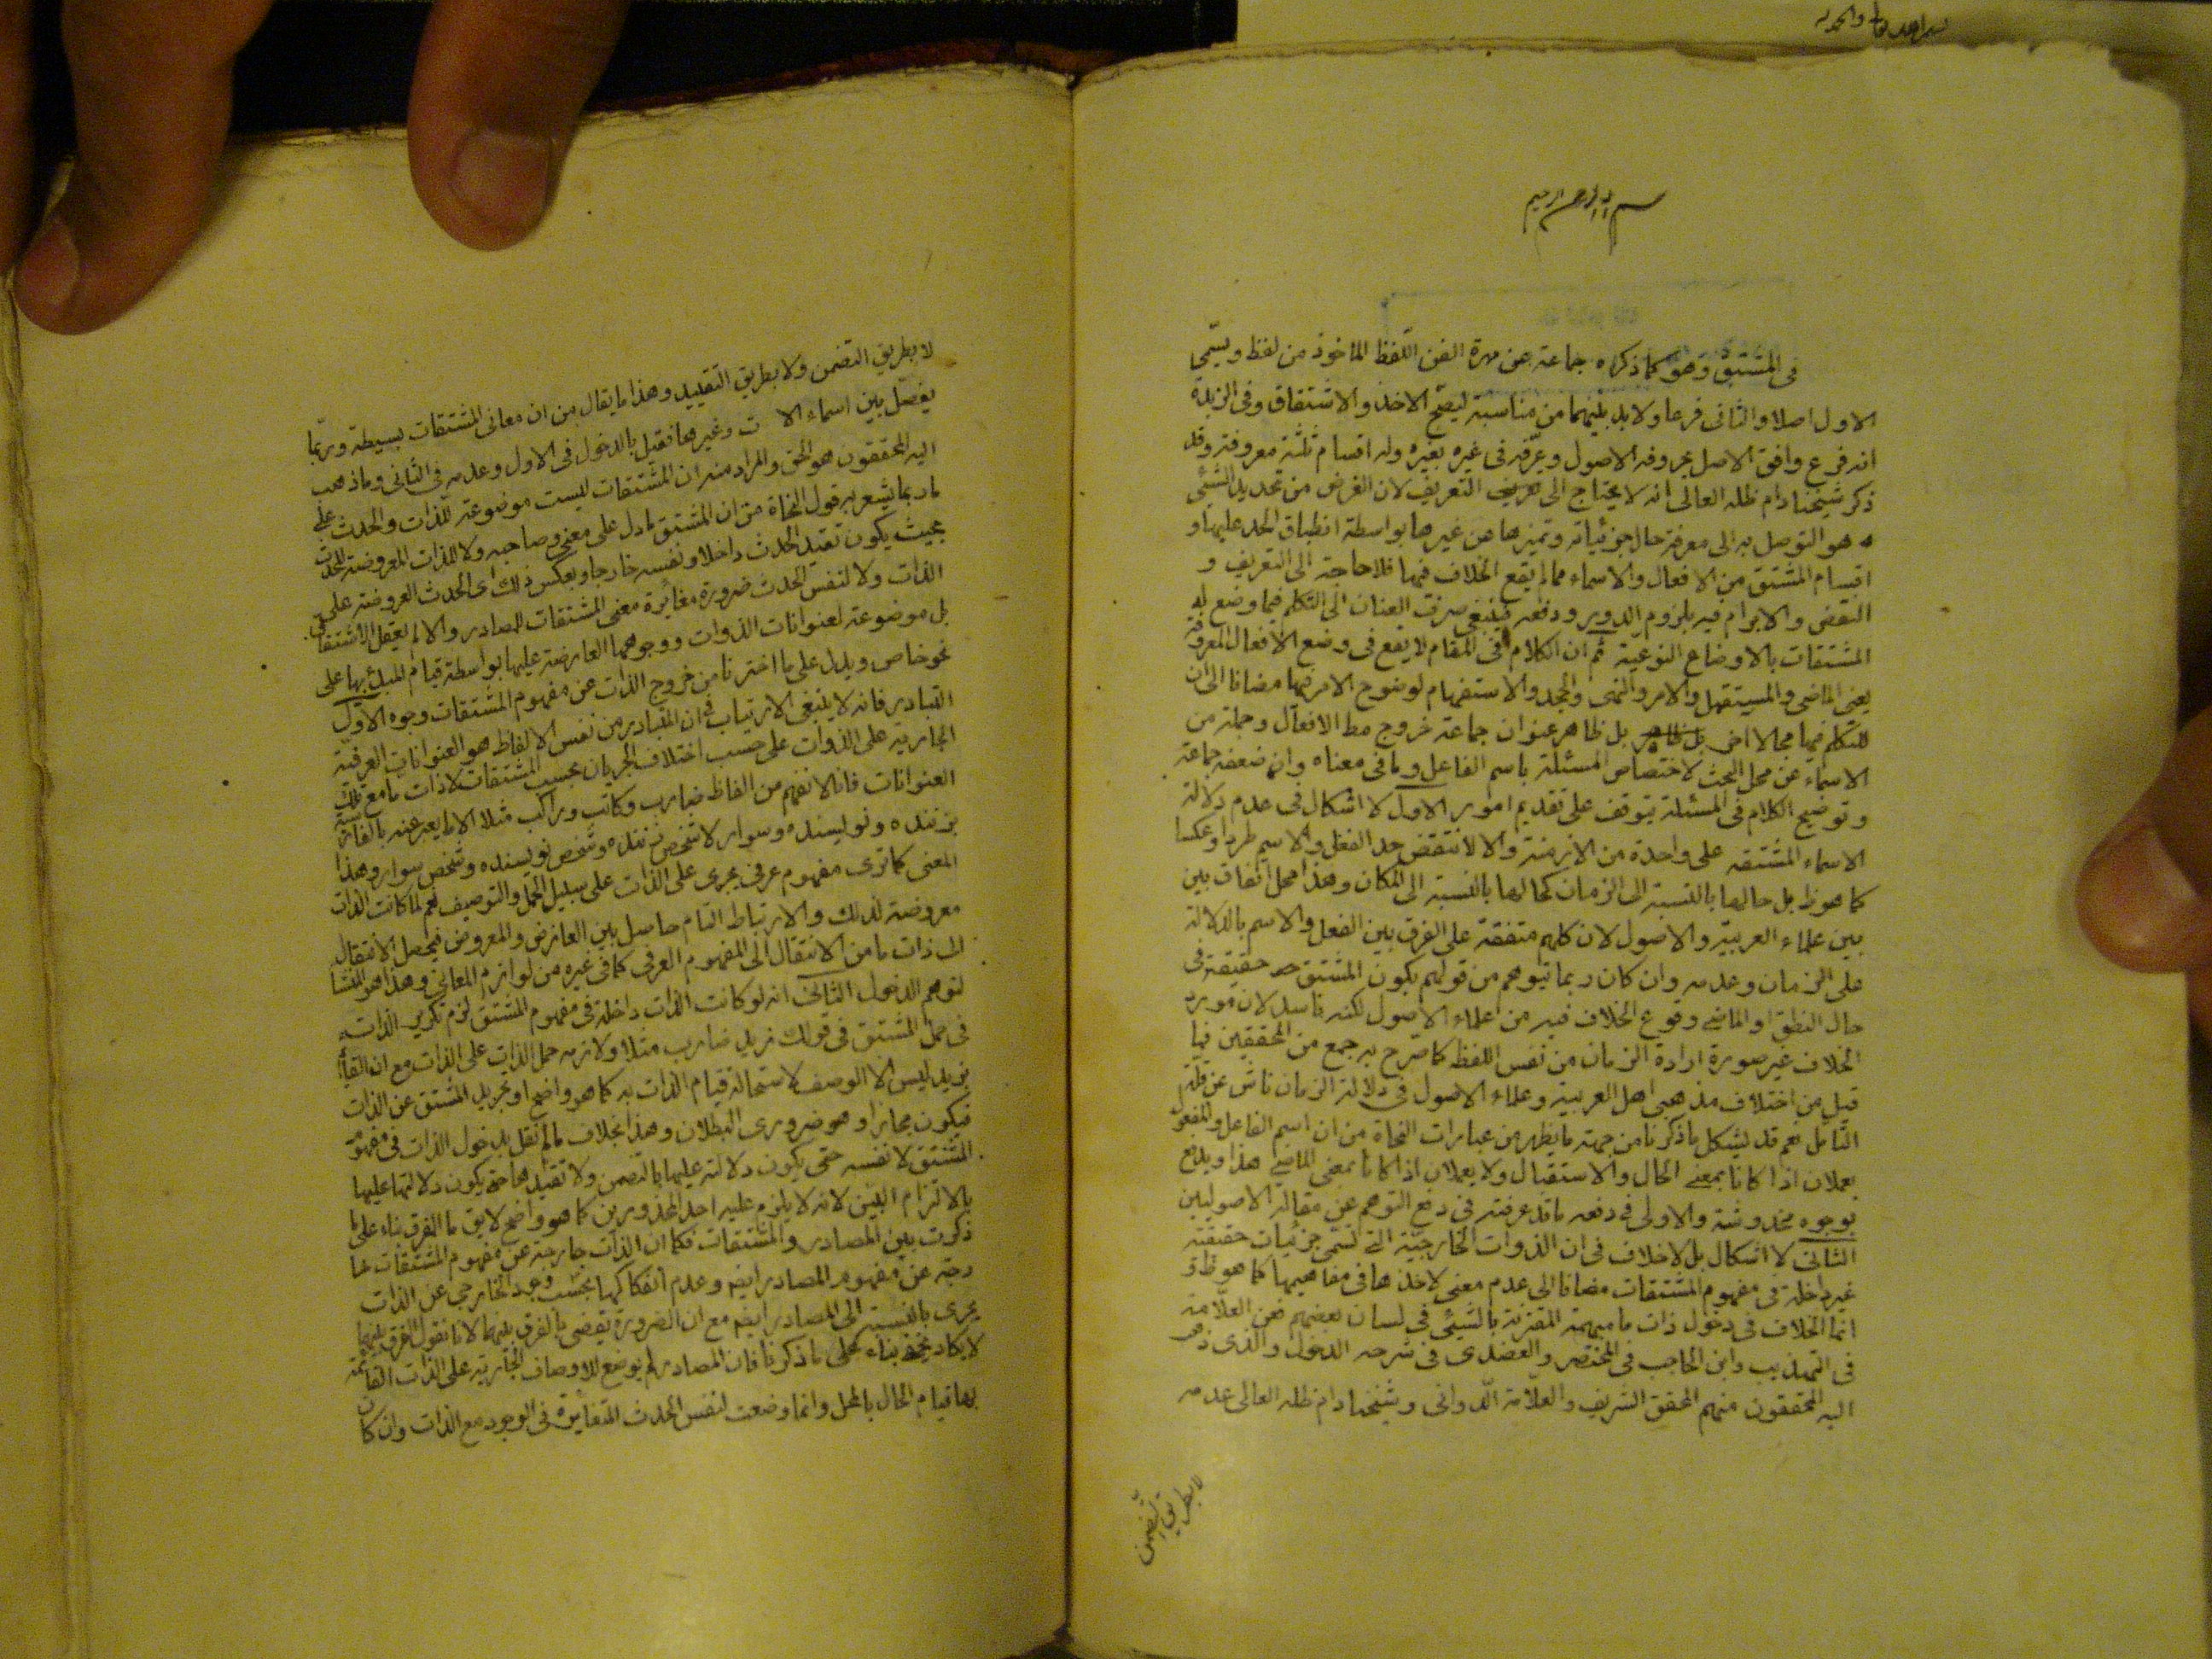 بسم الله الرحمن الرحيم
فى المشتق وهو كما ذكراه جماعة عن مهرة الفن اللفظ الماخوذ من لفظ ويسمى
الاول اصلا والثانى فرعا ولا بد بينهما من مناسبة ليصح الاخذ والاشتقاق وفى الزبدة
انه فرع وافق الاصل بحروفه الاصول وعرّفه فى غيره بغيره وله اقسام ثلثة معروفة وقد
ذكر شيخنا دام ظله العالى انه لا يحتاج الى التعريف لان الغرض من تحديد الشئ
هو التوصل به الى معرفة حال جزئياته وتميزها عن غيرها بواسطة انطباق الحد عليها و
اقسام المشتق من الافعال والاسماء مما لم يقع الخلاف فيها فلا حاجة الى التعريف و
النقض والابرام فيه بلزوم الدور ودفعه فينبغى صرف العنان الى التكلم فيما وضع له
المشتقات بالاوضاع النوعية ثم ان الكلام فى المقام لا يقع فى وضع الافعال المعروفة
يعنى الماضى والمستقبل والامر والنهى والجحد والاستفهام لوضوح الامر فيها مضافا الى ان
للتكلم فيها محالا اخر بل ظاهر عنوان جماعة خروج مط الافعال وجملة من
الاسماء عن محل البحث لاختصاص المسئلة باسم الفاعل وما فى معناه وان ضعفه جماعة
وتوضيح الكلام فى المسئلة يتوقف على تقديم امور الاول لا اشكال فى عدم دلالة
الاسماء المشتقه على واحدة من الازمنة والا لانتقض حد الفعل والاسم طردا وعكسا
كما هو ظ بل حالها بالنسبة الى الزمان كحالها بالنسبة الى المكان وهذا محل اتفاق بين
بين علماء العربية والاصول لان كلهم متفقة على الفرق بين الفعل والاسم بالدلالة
على الزمان وعدمه وان كان ربما يتوهم من قولهم بكون المشتق حقيقة فى
حال النطق او الماضى وقوع الخلاف فيه من اعلماء الاصول لكنه فاسد لان مورد
الخلاف غير صورة ارادة الزمان من نفس اللفظ كما صرح به جمع من المحققين فما
قيل من اختلاف مذهبى اهل العربية وعلماء الاصول فى دلالة الزمان ناش عن قلة
التامل نعم قد يشكل ما ذكرنا من جهة ما يظهر من عبارات النحاة من ان اسم الفاعل والمفعول
يعملان اذا كانا بمعنى الحال والاستقبال ولا يعملان اذا كانا بمعنى الماضى هذا ويدفع
بوجوه مخدوشة والاولى فى دفعه ما قد عرفته فى دفع التوهم عن مقالة الاصوليين
الثانى لا اشكال بل لا خلاف فى ان الذوات الخارجية التى تسمى جزئيات حقيقية
غير داخلة فى مفهوم المشتقات مضافا الى عدم معنى لاخذها فى مفاهيمها كما هو ظ و
انما الخلاف فى دخول ذات ما مبهمة المقترنة بالشيئى فى لسان بعضهم فعن العلامة
فى التهذيب وابن الحاجب فى المختصر والعضدى فى شرحه الدخول والذى ذهب
اليه المحققون منهم المحقق الشريف والعلامة الدوانى وشيخنا دام ظله العالى عدمه
لا بطريق التضمن
لا بطريق التضمن ولا بطريق التقييد وهذا ما يقال من ان معانى المشتقات بسيطة وربما
يفصل بين اسماء الالات وغيرها فقيل بالدخول فى الاول وعدمه فى الثانى وما ذهب
اليه المحققون هو الحق والمراد منه ان المشتقات ليست موضوعة للذات والحدث على
ما ربما يشعر به قول النحاة من ان المشتق ما دل على معنى وصاحبه ولا للذات المعروضة للحدث
بحيث يكون تقيد الحدث داخلا ونفسه خارجا وبعكس ذلك اى الحدث العروضة على
الذات ولا لنفس الحدث ضرورة مغائرة معنى المشتقات للمصادر والا لم يعقل الاشتقاق
بل موضوعة لعنوانات الذوات ووجوهها العارضة عليها بواسطة قيام المبدء بها على
نحو خاص ويدل على ما اخترنا من خروج الذات عن مفهوم المشتقات وجوه الاول
التبادر فانه لا ينبغى الارتياب فى ان المتبادر من نفس الالفاظ هو العنوانات العرفية
الجارية على الذوات على حسب اختلاف الجريان بحسب المشتقات لا ذات ما مع تلك
العنوانات فانا لا نفهم من الفاظ ضارب وكاتب وراكب مثلا الا ما يعبر عنه بالفارسية
بزننده ونويسنده وسوار لا شخص زننده وشخص نويسنده وشخص سوار وهذا
المعنى كما ترى مفهوم عرفى يجرى على الذات على سبيل الحمل والتوصيف نعم لما كانت الذات
معروضة لذلك والارتباط التام حاصل بين العارض والمعروض فيحصل الانتقال
الى ذات ما من الانتقال الى المفهوم العرفى كما فى غيره من لوازم المعانى وهذا هو المنشا
لتوهم الدخول الثانى انه لو كانت الذات داخلة فى مفهوم المشتق لزم تكرير الذات
فى حمل المشتق فى قولك زيد ضارب مثلا ولازمه حمل الذات على الذات مع ان القائم
بزيد ليس الا الوصف لاستحالة قيام الذات به كما هو واضح او تجريد المشتق عن الذات
فيكون مجازا وهو ضرورى البطلان وهذا بخلاف ما لم نقل بدخول الذات فى مفهوم
المشتق لا نفسه حتى يكون دلالته عليها بالتضمن ولا تقيدها حتى يكون دلالتها عليها
بالالتزام البين لانه لا يلزم عليه احد المحذورين كما هو واضح لا يق ما الفرق بناء على ما
ذكرت بين المصادر والمشتقات فكما ان الذات خارجة عن مفهوم المشتقات خا
رجة عن مفهوم المصادر ايضا وعدم انفكاكها بحسب وجود الخارجى عن الذات
يجرى بالنسبة الى المصادر ايضا مع ان الضرورة تقضى بالفرق بينهما لانا نقول الفرق بينهما
لا يكاد يخفى بناء على ما ذكرنا فان المصادر لم يوضع للاوصاف الجارية على الذات القائمة
بها قيام الحال بالمحل وانما وضعت لنفس الحدث المتغايرة فى الوجود مع الذات وان كان